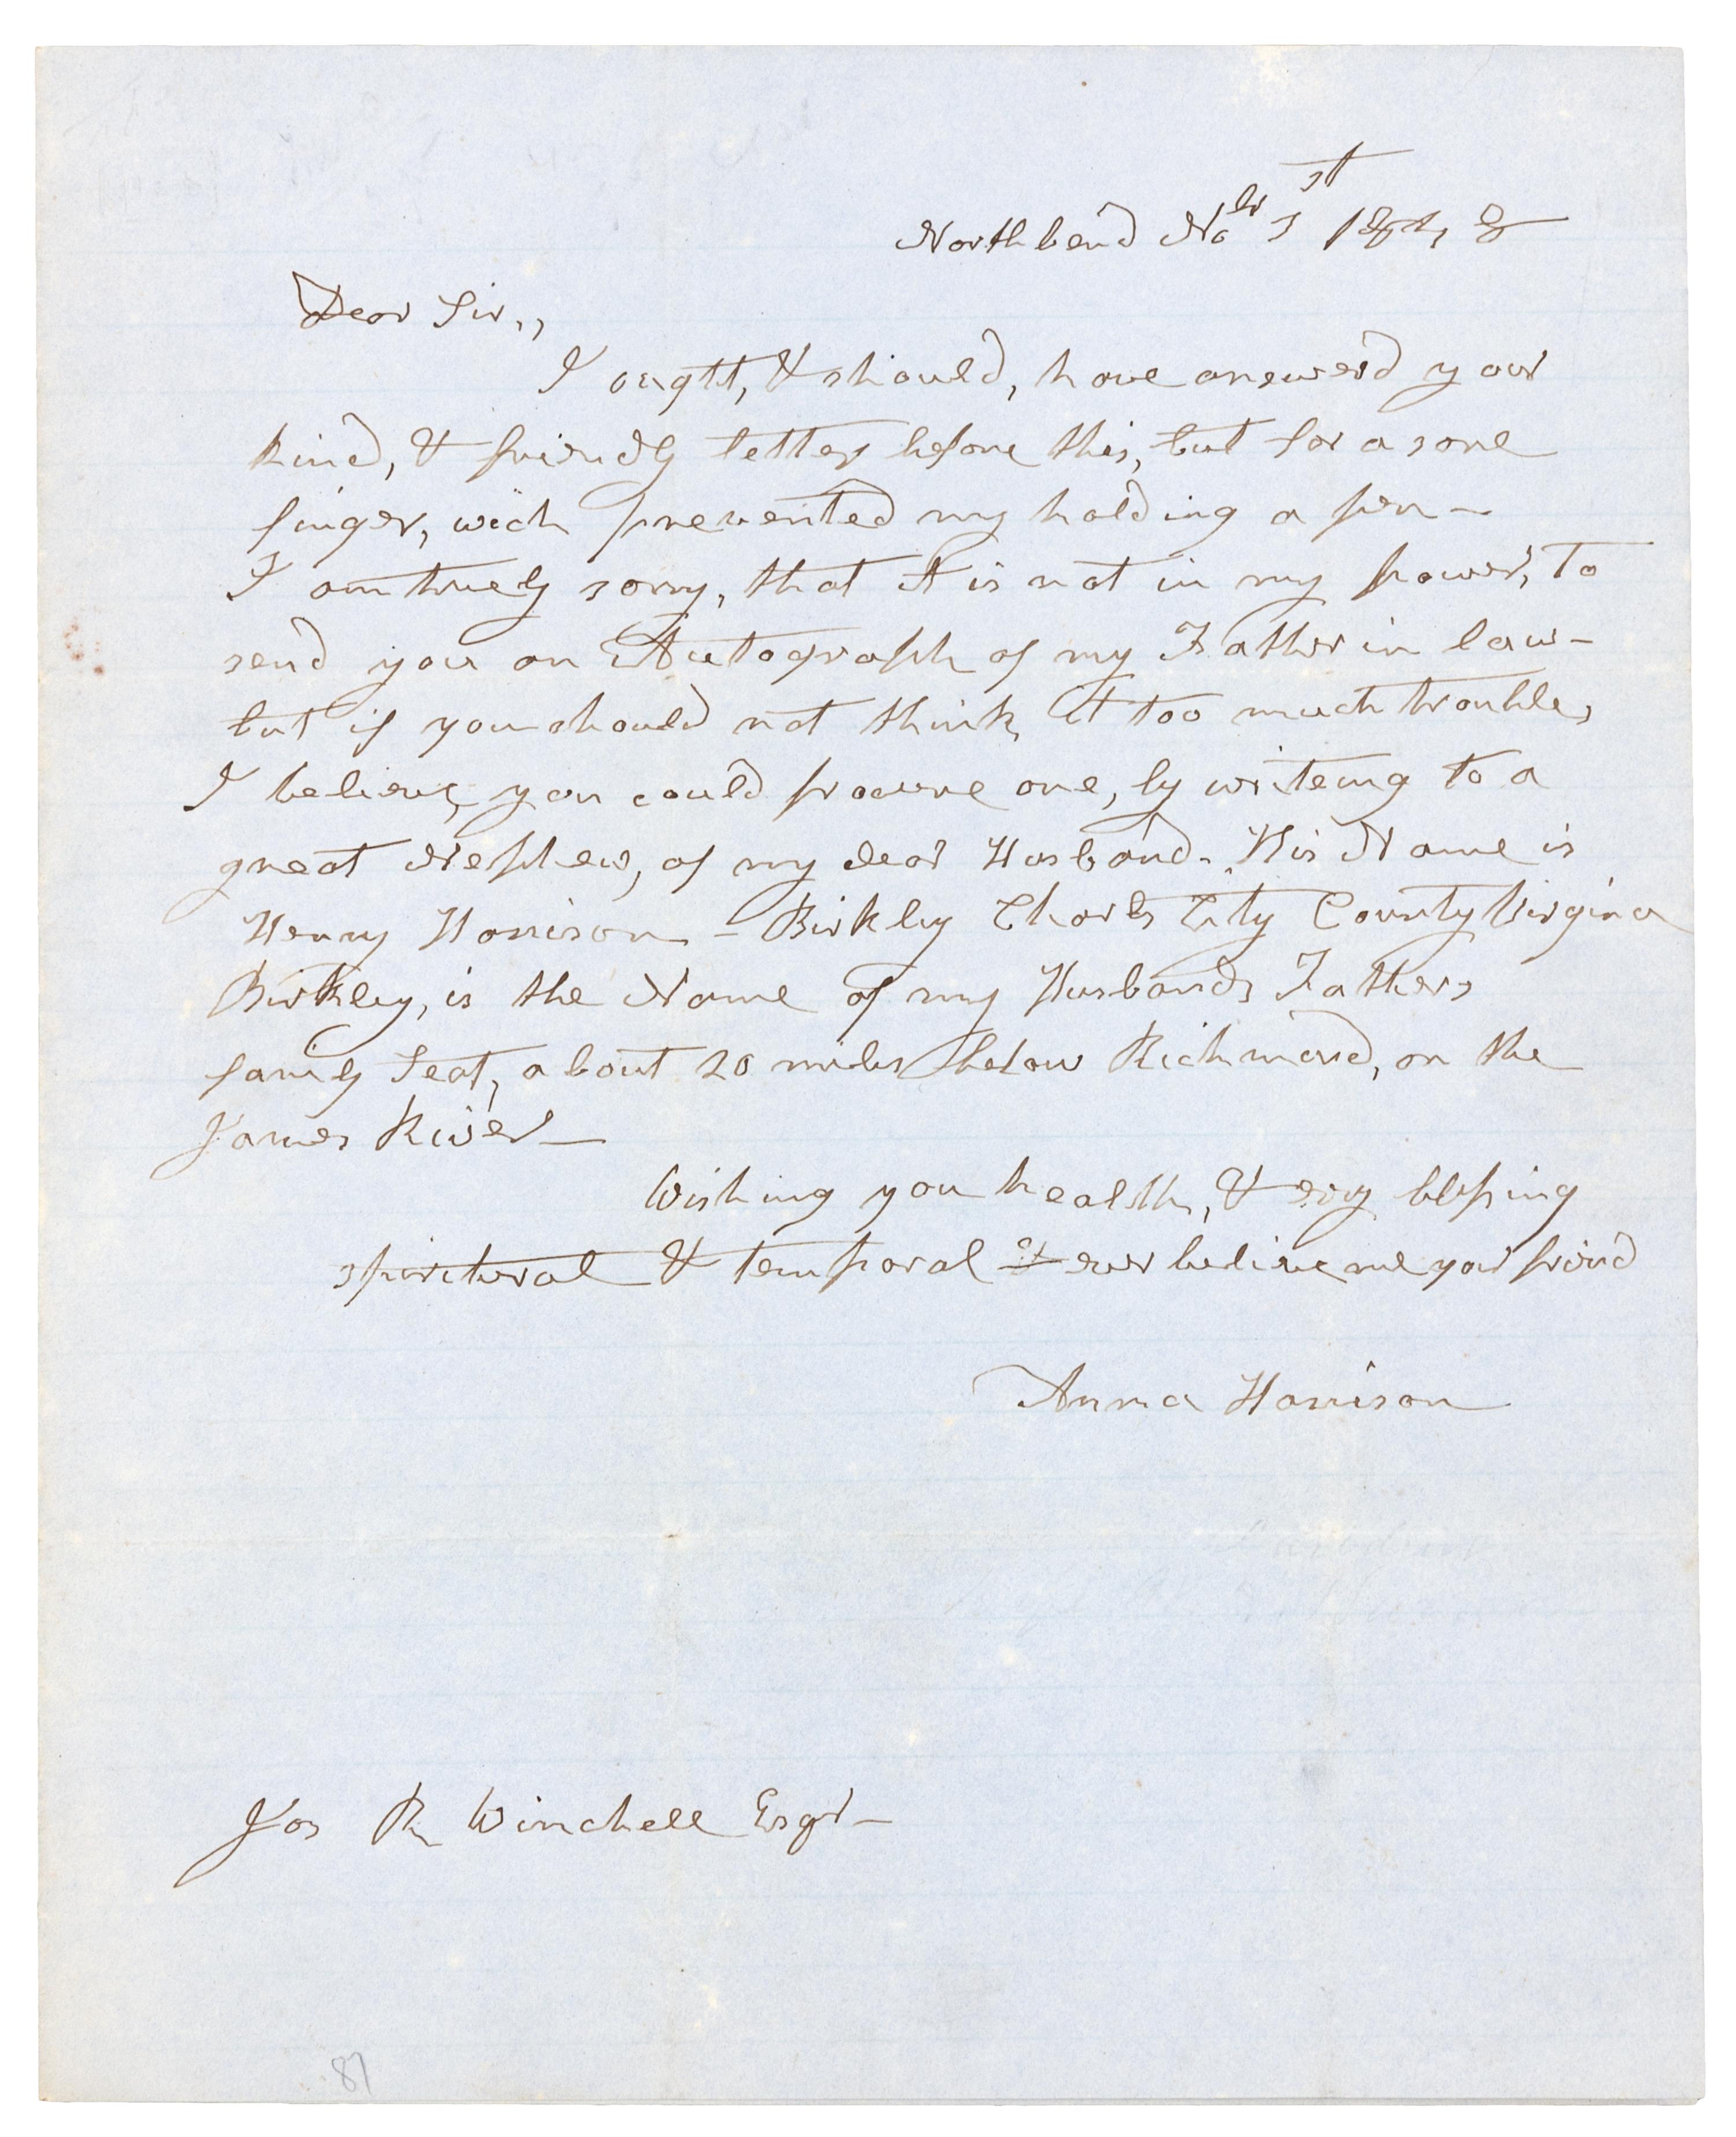 Northbend No^br 1^st 1848
Dear Sir,,
I ougtt, & should, have answerd your
kind, & friendly letter before this, but for a sore
finger, wich prevented my holding a pen –
I am truely sorry, that it is not in my power, to
send you an Autograph of my Father in law –
but if you should not think it too much trouble,
I believe you could procure one, by writeing to a
great Nephew, of my dear Husband. His Name is
Henry Harrison – Birkley Charles City County Virgina
Birkley, is the Name of my Husbands Fathers
family Seat, about 20 miles below Richmond, on the
James River –
Wishing you health, & evry blessing
spiritural & temporal & ever believe me your friend
Anna Harrison
Jos R Winchell Esqr –
87